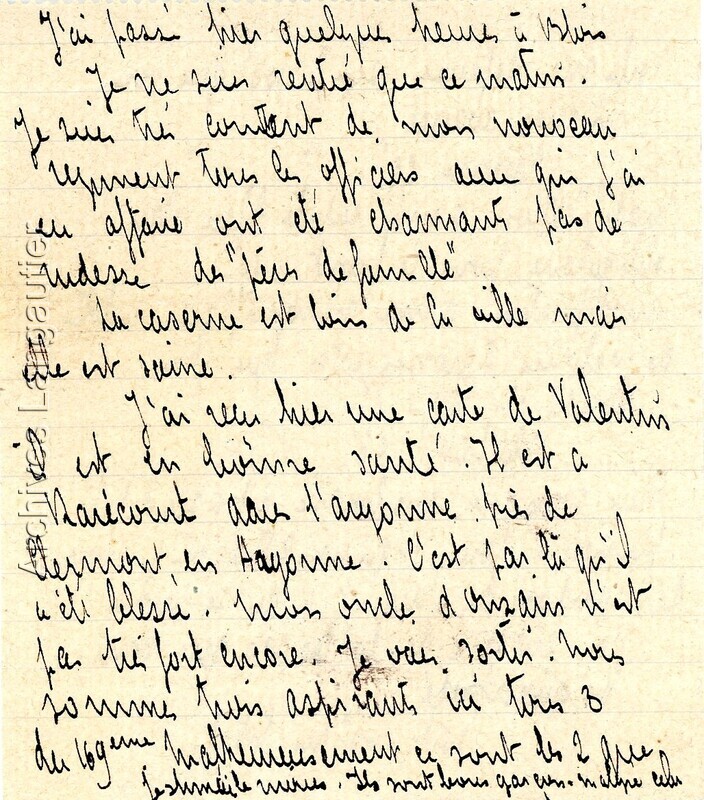 J'ai passé hier quelques heures à Blois
Je ne suis rentré que ce matin.
Je suis très content de mon nouveau
regiment tous les officiers avec qui j'ai
eu affaire ont été charmants pas de
rudesse des "pères de famille"
La caserne est loin de la ville mais
elle est saine.
J'ai reçu hier une carte de Valentin
est en bonne santé. Il est a
Rarécourt dans l'argonne près de
Clermont en Argonne. C'est par là qu'il
a été blessé. Mon oncle d'Onzain n'est
pas très fort encore. Je vais sortir. Nous
sommes trois aspirants ici tous 3
du 169eme malheureusement ce sont les 2 que
j'estimais le moins. Ils sont bons garçons malgré cela
Archives Langautier